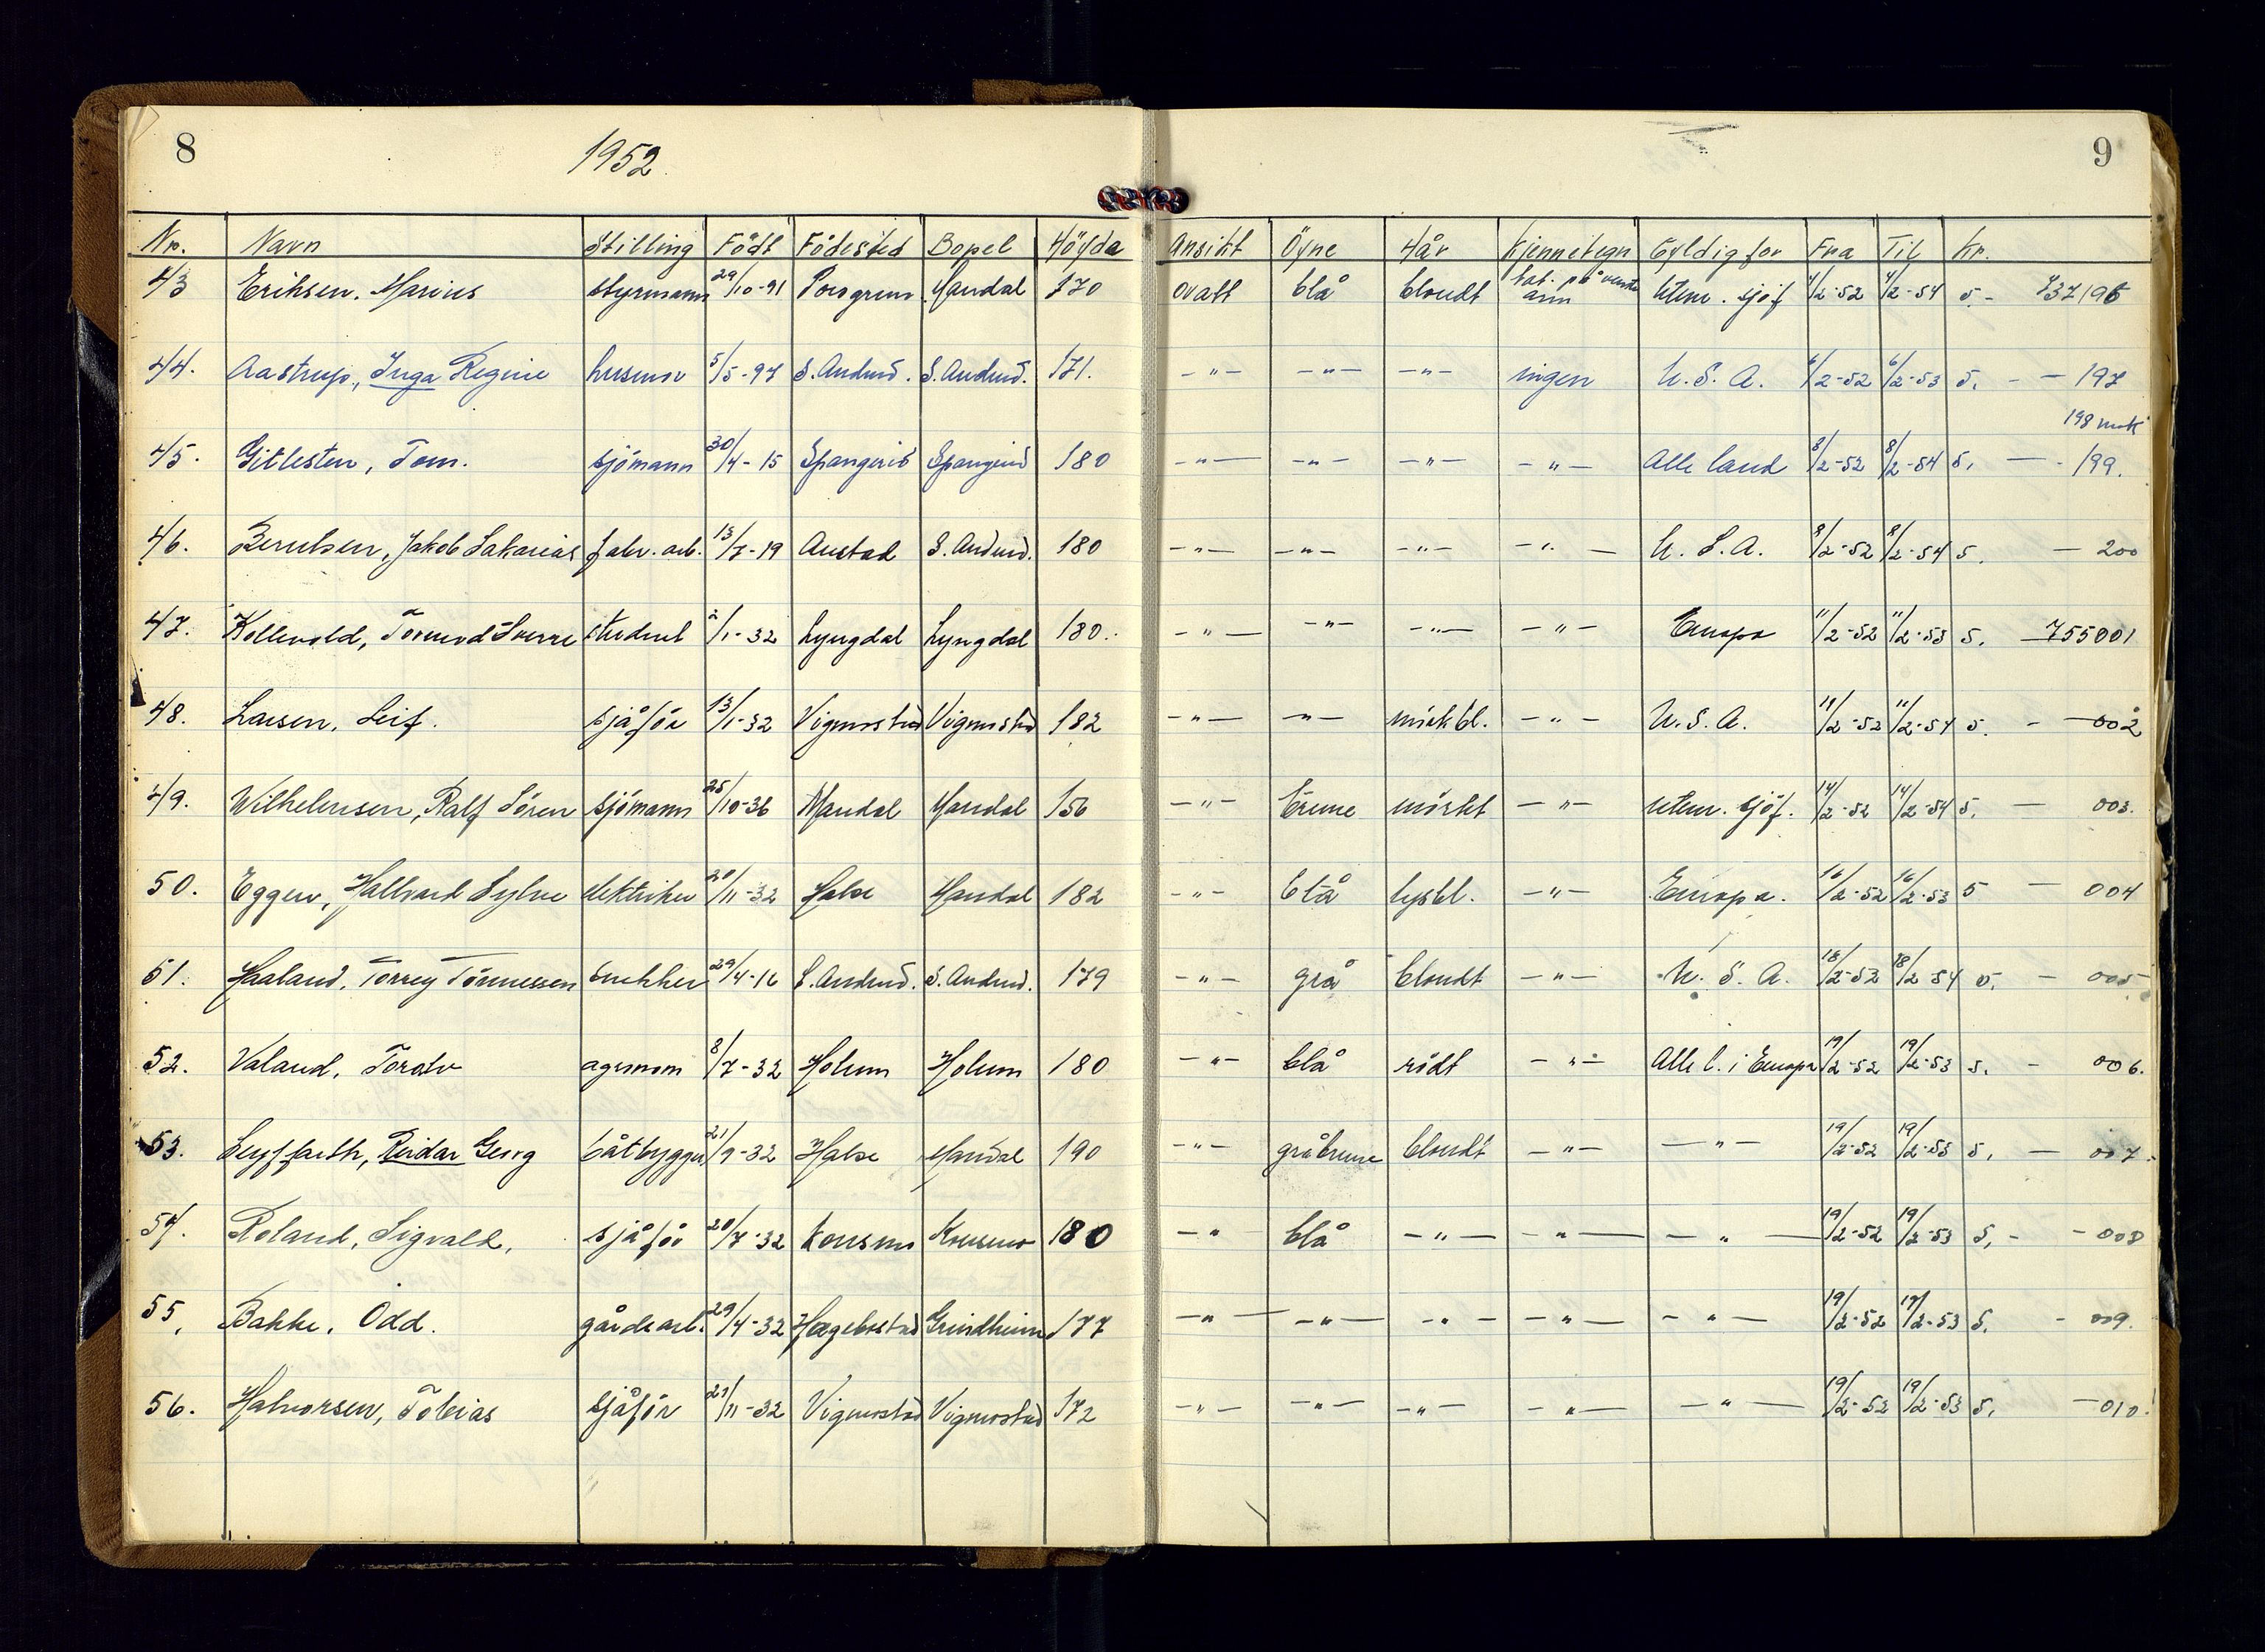 8
1952
9
Nr. Navn Stilling Födt Födested Bopel Höyda Ansikt Öyne Hår Kjennetegn Gyldig for Fra Til Kr.
43 Eriksen, Marius styrmann 29/10-91 Porsgrun Mandal 170 ovalt blå blondt tat. på venstre arm uten. sjöf 4/2-52 4/2-54 5.- 737196
44. Aastrup, Inga Regine husmor 5/5-97 S. Audned. S. Audned. 171. -"- -"- -"- ingen U.S.A. 6/2-52 6/2-53 5. - - 197
198 mak
45. Gitlesten, Tom. sjömann 30/4-15 Spangerid Spangerid 180 -"- -"- -"- -"- Alle land 8/2-52 8/2-54 5. - - 199.
46. Berntsen, Jakob Sakarias fabr. arb. 13/7-19 Austad S. Audned. 180 -"- -"- -"- -"- U.S.A. 8/2-52 8/2-54 5. - 200
47. Kollevold, Tormod Sverre student 2/1-32 Lyngdal Lyngdal 180. -"- -"- -"- -"- Europa 11/2-52 11/2-53 5. 755001
48. Larsen, Leif. sjåför 13/1-32 Vigmostad Vigmostad 182 -"- -"- mörkbl. -"- U.S.A. 11/2-52 11/2-54 5. - - 002
49. Wilhelmsen, Ralf Sören sjömann 25/10-36 Mandal Mandal 156 -"- brune mörkt -"- uten. sjöf. 14/2-52 14/2-54 5. - 003.
50. Eggen, Hallvard Sylve elektriker 20/11-32 Halse Mandal 182 -"- blå lysbl. -"- Europa. 16/2-52 16/2-53 5 - 004
51. Haaland, Torrey Tönnessen snekker 29/4-16 S. Audned. S. Audned. 179 -"- grå blondt -"- U.S.A. 18/2-52 18/2-54 5. - 005
52. Valand, Toralv agronom 8/7-32 Holum Holum 180 -"- blå rödt -"- Alle l. i Europa 19/2-52 19/2-53 5. - 006.
53. Seyffarth, Reidar Georg båtbygger 21/9-32 Halse Mandal 190 -"- gråbrune blondt -"- -"- 19/2-52 19/2-53 5. - 007.
54. Roland, Sigvald, sjåför 20/7-32 Konsmo Konsmo 180 -" blå -"- -"- -"- 19/2-52 19/2-53 5. - - 008
55, Bakke, Odd. gårdsarb. 29/4-32 Hægebostad Grindheim 177 -"- -"- -"- -"- -"- 19/2-52 19/2-53 5. - 009.
56. Halvorsen, Tobias sjåför 21/11-32 Vigmostad Vigmostad 172 -"- -"- -"- -"- -"- 19/2-52 19/2-53 5. - 010.